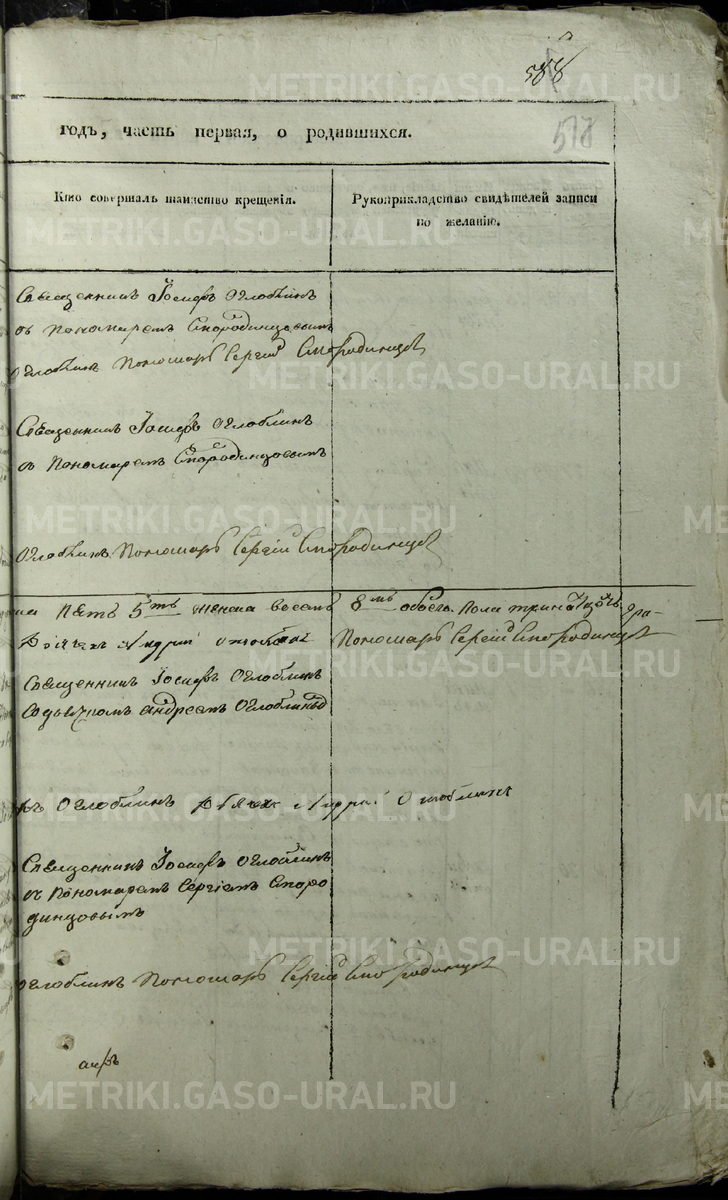 588
578
годъ, часть первая, о родившихся.
Кто совершалъ таинство крещенія.
Рукоприкладство свидѣтелей записи
по желанію.
Священникъ Іосифъ Оглоблинъ
съ Пономаремъ Скородинцовымъ
Оглоблинъ Пономарь Сергій Скородинцовъ
Священникъ Іосифъ Оглоблинъ
съ Пономаремъ Скородинцовымъ
Оглоблинъ Пономарь Сергій Скородинцовъ
пять 5ть женска восемь 8мь обоего пола
Дьячекъ Андрей Оглоблинъ Пономарь Сергій Скородинцовъ
Священникъ Іосифъ Оглоблинъ
содьячкомъ андреемъ Оглоблинымъ
Оглоблинъ Дьячекъ Андрей Оглоблинъ
Священникъ Іосифъ Оглоблинъ
съ Пономаремъ Сергіемъ Скоро
динцовымъ
Оглоблинъ Пономарь Сергій Скородинцовъ
METRIKI.GASO-URAL.RU